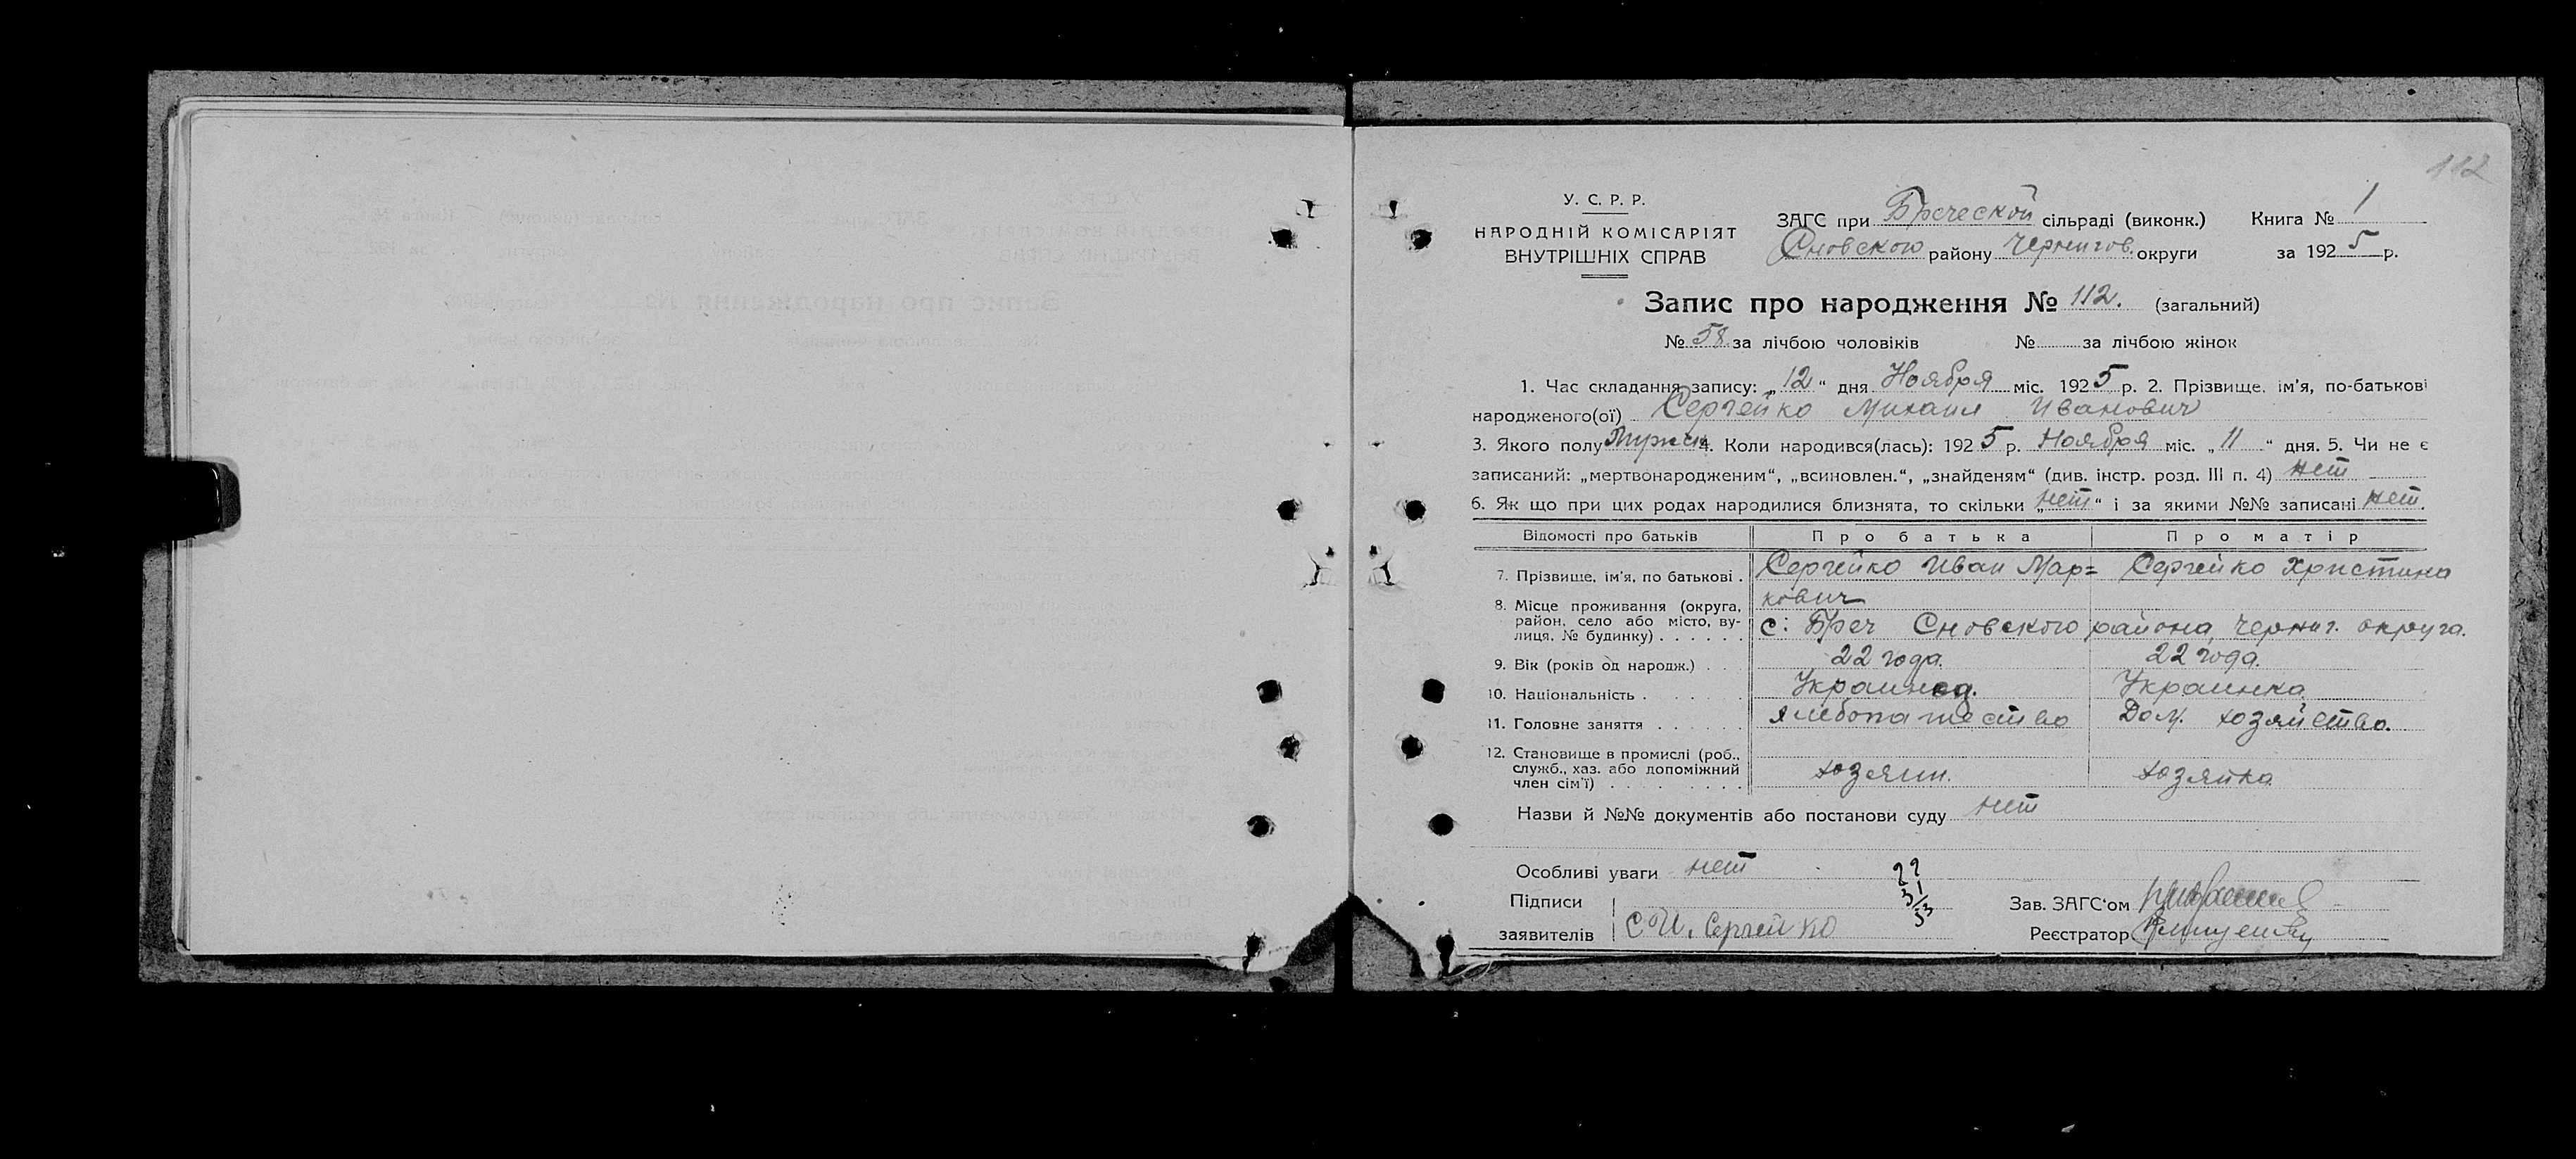 112
У. С. Р. Р.
НАРОДНІЙ КОМІСАРІЯТ
ВНУТРІШНІХ СПРАВ
ЗАГС при Бреческой сільраді (виконк.) Книга № 1
Сновского району Чернигов. округи за 1925 р.
Запис про народження № 112. (загальний)
№ 58 за лічбою чоловіків № за лічбою жінок
1. Час складання запису: „12“ дня Ноября міс. 1925 р. 2. Прізвище, ім'я, по-батькові
народженого(ої) Сергейко Михаил Иванович
3. Якого полу Мужск 4. Коли народився(лась): 1925 р. Ноября міс. „11“ дня. 5. Чи не є
записаний: „мертвонародженим“, „всиновлен.“, „знайденям“ (див. інстр. розд. III п. 4) нет
6. Як що при цих родах народилися близнята, то скільки „нет“ і за якими №№ записані нет.
Відомості про батьків Про батька Про матір
7. Прізвище, ім'я, по батькові . Сергейко Иван Мар= Сергейко Христина
кович
8. Місце проживання (округа,
район, село або місто, ву-
лиця, № будинку) . . . . . . с: Бреч Сновского района, Черниг. округа.
9. Вік (років од народж.) . . . 22 года. 22 года.
10. Національність . . . . . . Украинец. Украинка
11. Головне заняття . . . . . . хлебопашество Дом. хозяйство.
12. Становище в промислі (роб.,
служб., хаз. або допоміжний
член сім'ї) . . . . . . . . . хозяин. хозяйка
Назви й №№ документів або постанови суду нет
Особливі уваги нет
22
31
53
Підписи
заявителів С И. Сергейко
Зав. ЗАГС'ом
Реєстратор